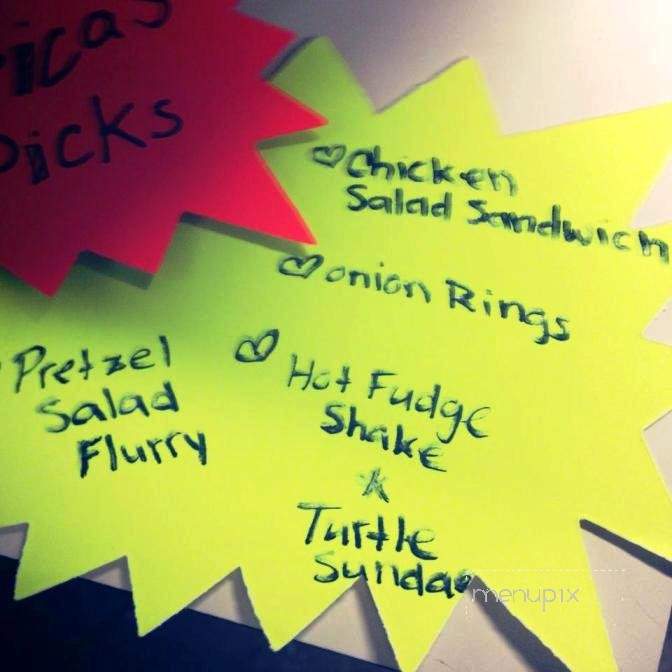 icas
Picks
Chicken
Salad Sandwich
onion Rings
Hot Fudge
Shake
Turtle
Sundae
Pretzel
Salad
Flurry
menupix